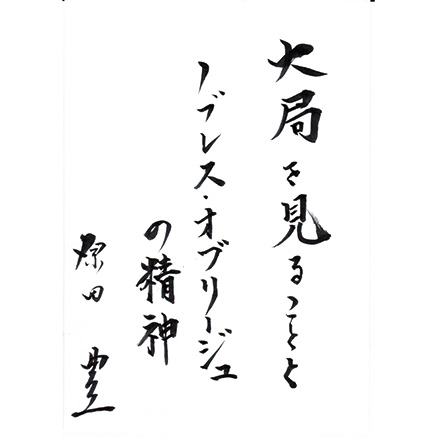 大局を見ることと
ノブレス・オブリージュ
の精神
原田 豊